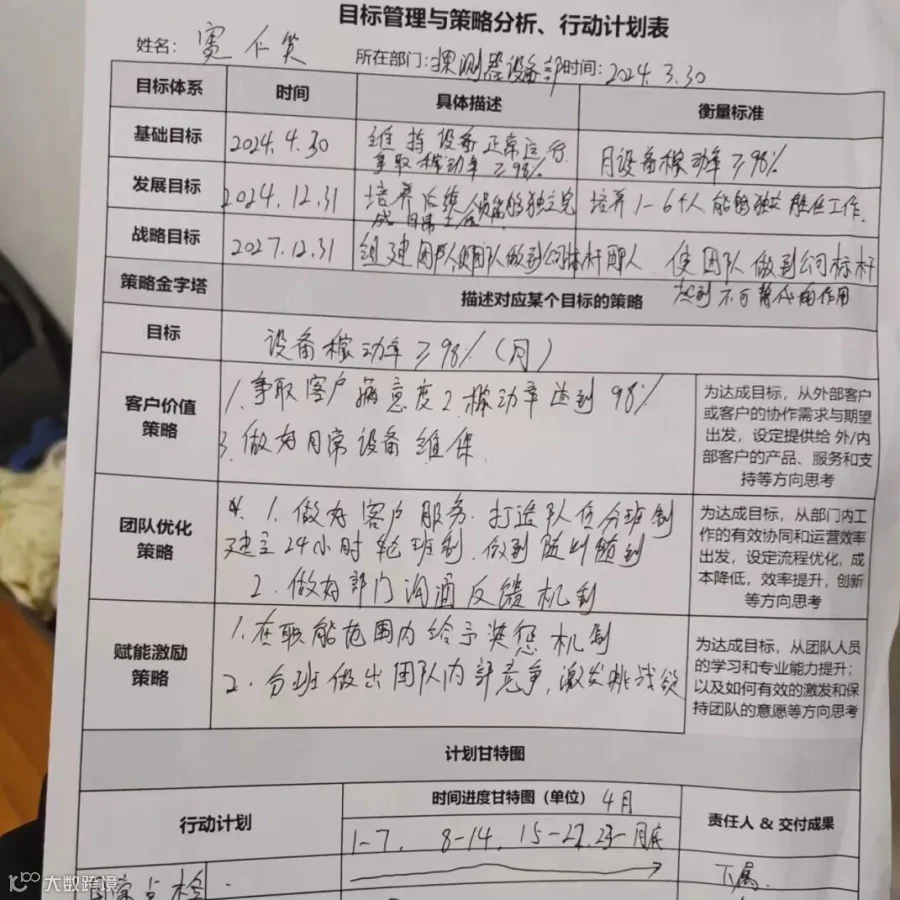 目标管理与策略分析、行动计划表
姓名: 宽仁笑 所在部门:探测器设备部 时间: 2024.3.30
目标体系 时间 具体描述 衡量标准
基础目标 2024.4.30 维持设备正常运行 争取稼动率≥98% 月设备稼动率≥98%
发展目标 2024.12.31 培养 人员能够独立完成日常 培养1-6个人能够独立胜任工作.
战略目标 2027.12.31 组建团队使团队做到公司标杆团队 使团队做到公司标杆
起到不可替代的作用
策略金字塔 描述对应某个目标的策略
目标 设备稼动率≥98%(月)
客户价值
策略
1.争取客户满意度 2.稼动率达到98%
3.做好日常设备维保
为达成目标,从外部客户
或客户的协作需求与期望
出发,设定提供给 外/内
部客户的产品、服务和支
持等方向思考
团队优化
策略
1.做好客户服务.打造队伍分班制
建立24小时轮班制.做到随叫随到
2.做好部门沟通反馈机制
为达成目标,从部门内工
作的有效协同和运营效率
出发,设定流程优化,成
本降低,效率提升,创新
等方向思考
赋能激励
策略
1.在职能范围内给予奖惩机制
2.分班做出团队内部竞争,激发挑战欲
为达成目标,从团队人员
的学习和专业能力提升;
以及如何有效的激发和保
持团队的意愿等方向思考
计划甘特图
行动计划 时间进度甘特图(单位) 4月 责任人 & 交付成果
1-7. 8-14. 15-22. 23-月底
日常点检 下属.
大数跨境